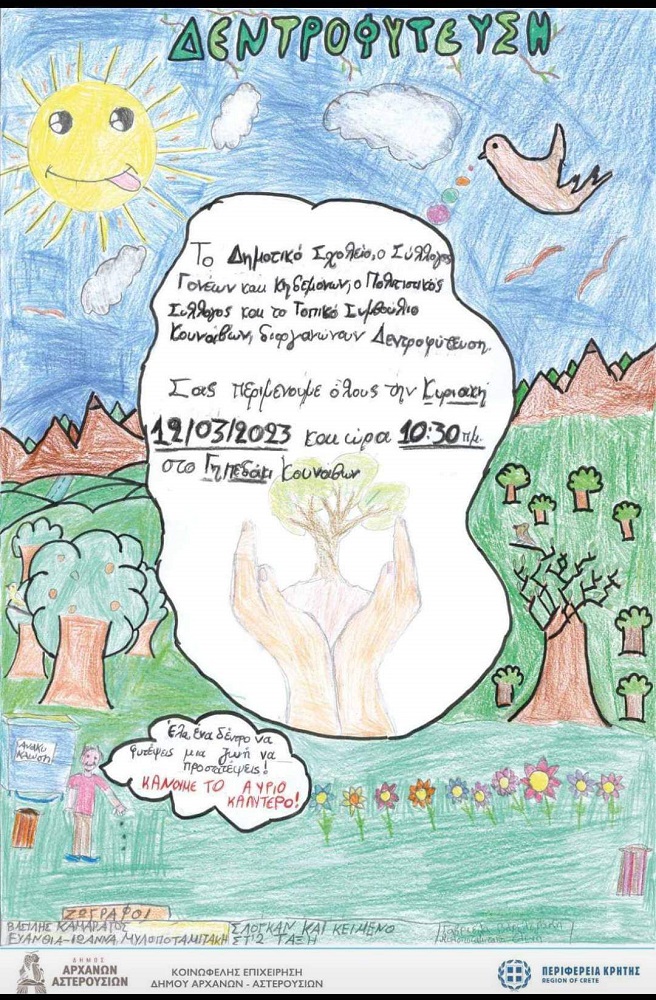 ΔΕΝΤΡΟΦΥΤΕΥΣΗ
Το Δημοτικό Σχολείο, ο Σύλλογος
Γονέων και Κηδεμόνων, ο Πολιτιστικός
Σύλλογος και το Τοπικό Συμβούλιο
Κουνάβων, διοργανώνουν Δεντροφύτευση.
Σας περιμένουμε όλους την Κυριακή
12/03/2023 και ώρα 10:30 π.μ.
στο Γηπεδάκι Κουνάβων
Έλα, ένα δέντρο να
φυτέψεις μια ζωή να
προστατέψεις!
ΚΑΝΟΥΜΕ ΤΟ ΑΥΡΙΟ
ΚΑΛΥΤΕΡΟ!
ΑΝΑΚΥ
ΚΛΩΣΗ
ΖΩΓΡΑΦΟΙ
ΒΑΣΙΛΗΣ ΚΑΜΑΡΑΤΟΣ
ΕΥΑΝΘΙΑ-ΙΩΑΝΝΑ ΜΥΛΟΠΟΤΑΜΙΤΑΚΗ
ΣΛΟΓΚΑΝ ΚΑΙ ΚΕΙΜΕΝΟ
ΣΤ'2 ΤΑΞΗ
ΔΗΜΟΣ
ΑΡΧΑΝΩΝ
ΑΣΤΕΡΟΥΣΙΩΝ
ΚΟΙΝΩΦΕΛΗΣ ΕΠΙΧΕΙΡΗΣΗ
ΔΗΜΟΥ ΑΡΧΑΝΩΝ - ΑΣΤΕΡΟΥΣΙΩΝ
ΠΕΡΙΦΕΡΕΙΑ ΚΡΗΤΗΣ
REGION OF CRETE